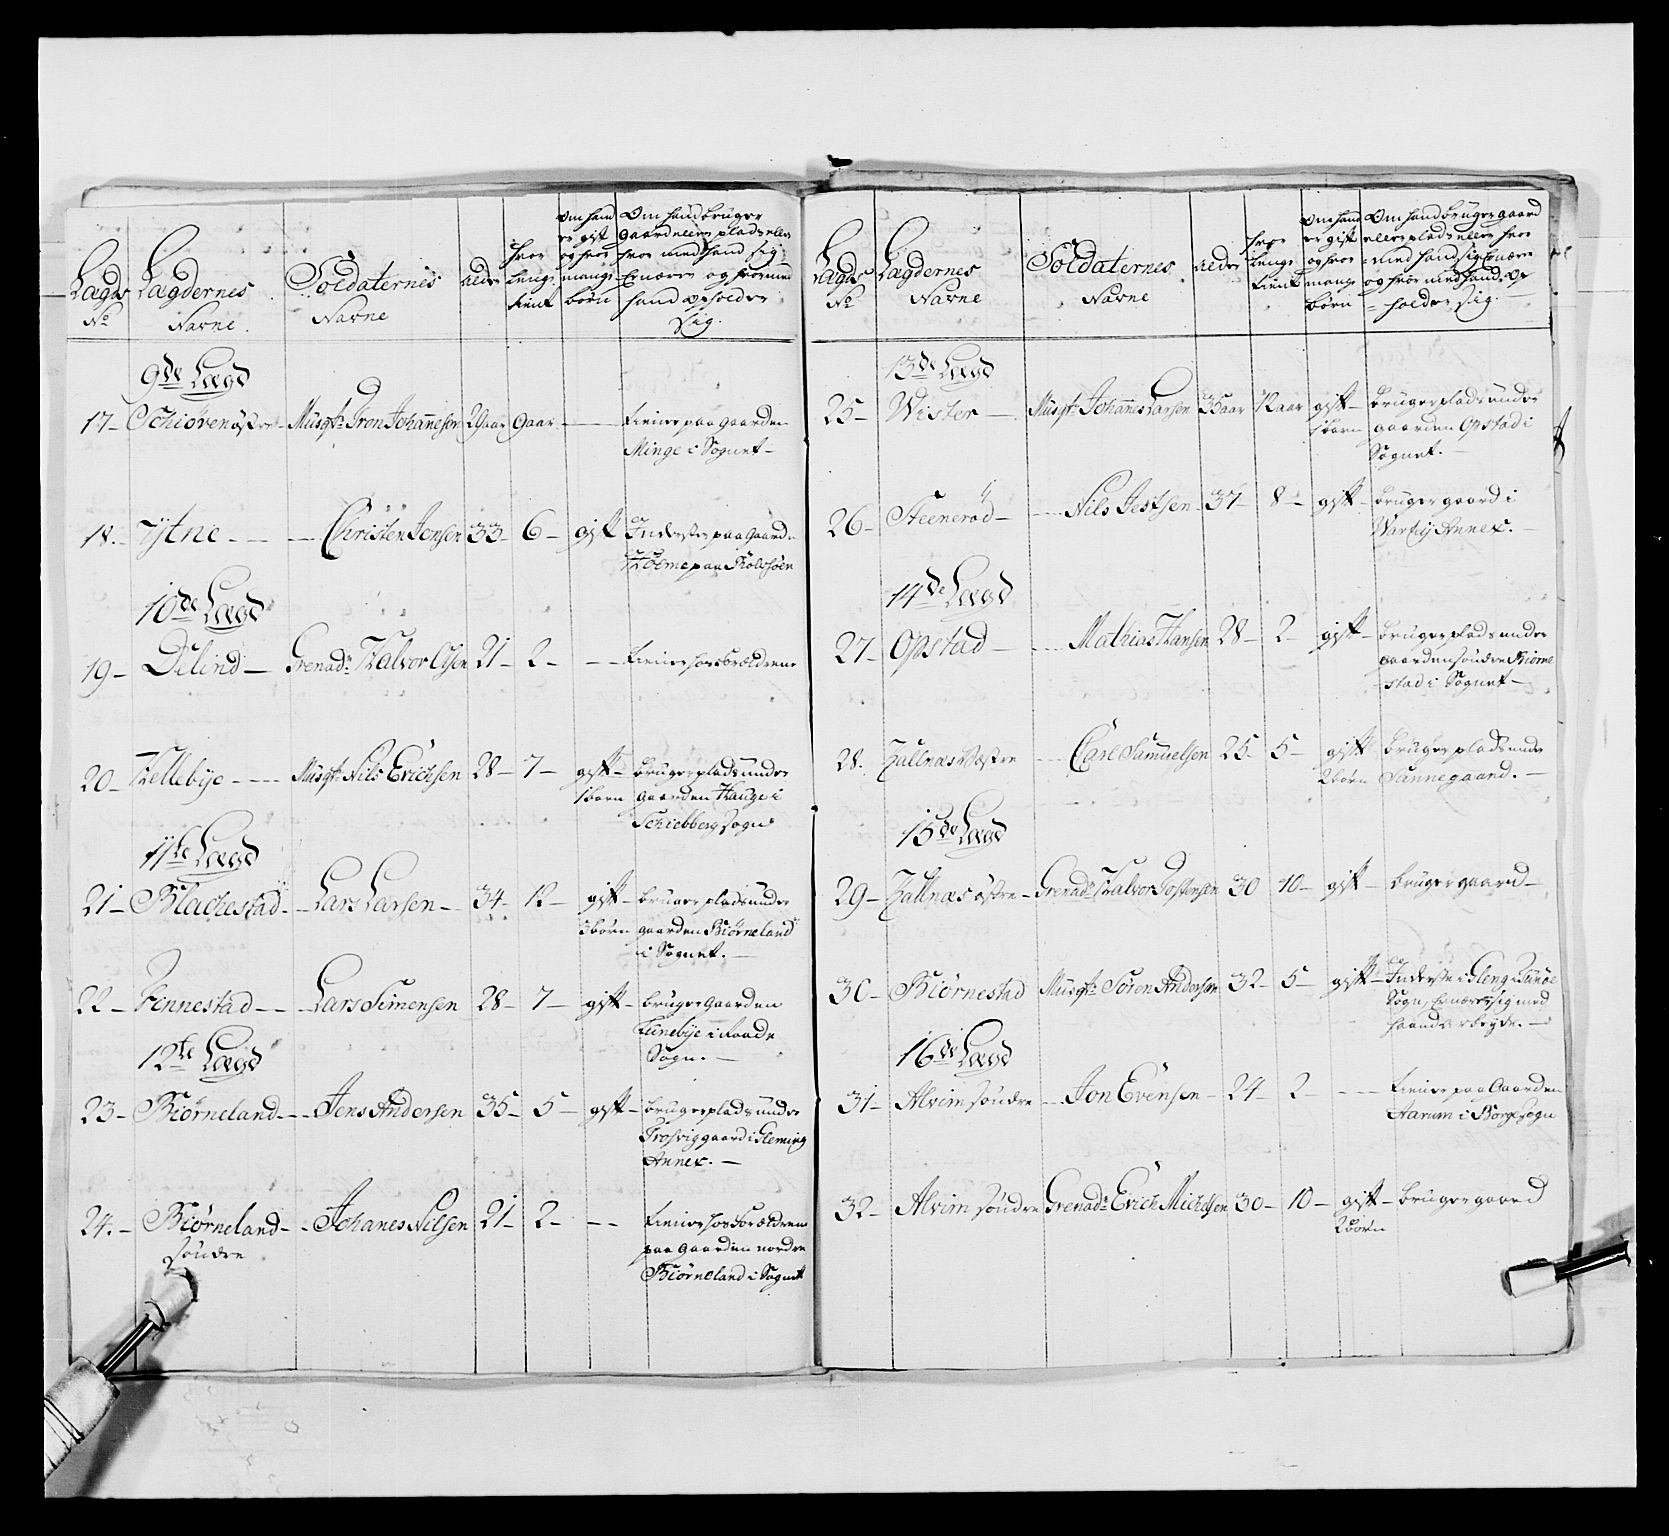 Lægds No
Lægdernes Navne.
Soldaternes Navne
alder
hvor lenge tient
om hand er gift og hvor mange børn
Om hand bruger gaard eller plads eller hvor med hand sig Ernærer og hvor med hand opholder sig.
9de Lægd
17 - Schiøren østre - Musqtr Tron Johannesen 29 aar 9 aar - tiener paa gaarden
Minge i Sognet -
18. - Ytne - - - Christen Jensen 33 - 6 - gift Inderste paa gaarden
Holme paa Rolssøen
10de Lægd
19 - Delind - Grenadr Halvor Olsen 21 - 2 - - - tiener hos forældrene
20 - Kellebye - - - Musqtr Nils Erichsen 28 - 7 - gift - bruger plads under
1 barn gaarden Hauge i
Schiebberg sogn
11te Lægd
21 - Blachestad - - Lars Larsen - 34 - 12 - gift - bruger plads under
3 børn gaarden Biørneland
i Sognet. -
22 - Finnestad - - - Lars Simensen 28 - 7 - gift - bruger gaarden
Tunebye i Raade
Sogn. -
12te Lægd
23 - Biørneland - - Jens Andersen 35 - 5 - gift - bruger plads under
Trosvig gaard i Gleming
Annex. -
24. - Biørneland - - Johanes Nilsen 21 - 2 - - - tiener hos Forældrene
søndre paa gaarden nordre
Biørneland i Sognet
Lægds No
Lægdernes Navne
Soldaternes Navne
alder
hvor lenge tient
om hand er gift og hvor mange børn
Om hand bruger gaard eller plads eller hvor med hand sig Ernærer og hvor med hand op=holder sig.
13de Lægd
25 - Wister - Musqtr Johannes Larsen 35 aar 12 aar gift - bruger plads under
1 barn gaarden Opstad i
Sognet. -
26 - Steenerød - - - Nils Jestsen 37 - 8 - gift - bruger gaard i
Warteig Annex. -
14de Lægd
27 - Opstad - - - Mathias Hansen 28 - 2 - gift - bruger plads under
gaarden søndre Biørne
stad i Sognet -
28. Zallnæs Vestre - - Carl Samuelsen 25 - 5 - gift bruger plads under
2 børn Sannegaard. -
15de Lægd
29 - Zallnæs østre - Grenadr Halvor Jostensen 30 10 - gift - bruger gaard -
30 - Biørnestad Musqtr Søren Andersen 32 - 5 - gift - Inderste i Gleng i Tunøe
Sogn, Ernærer sig med
haand Arbeyde. -
16de Lægd
31 - Alvim søndre - - Jon Evensen - 24 - 2 - - - tiener paa Gaarden
Aarum i Borge sogn
32 - Alvim søndre Grenadr Erich Michelsen 30 - 10 - gift - bruger gaard
2 børn